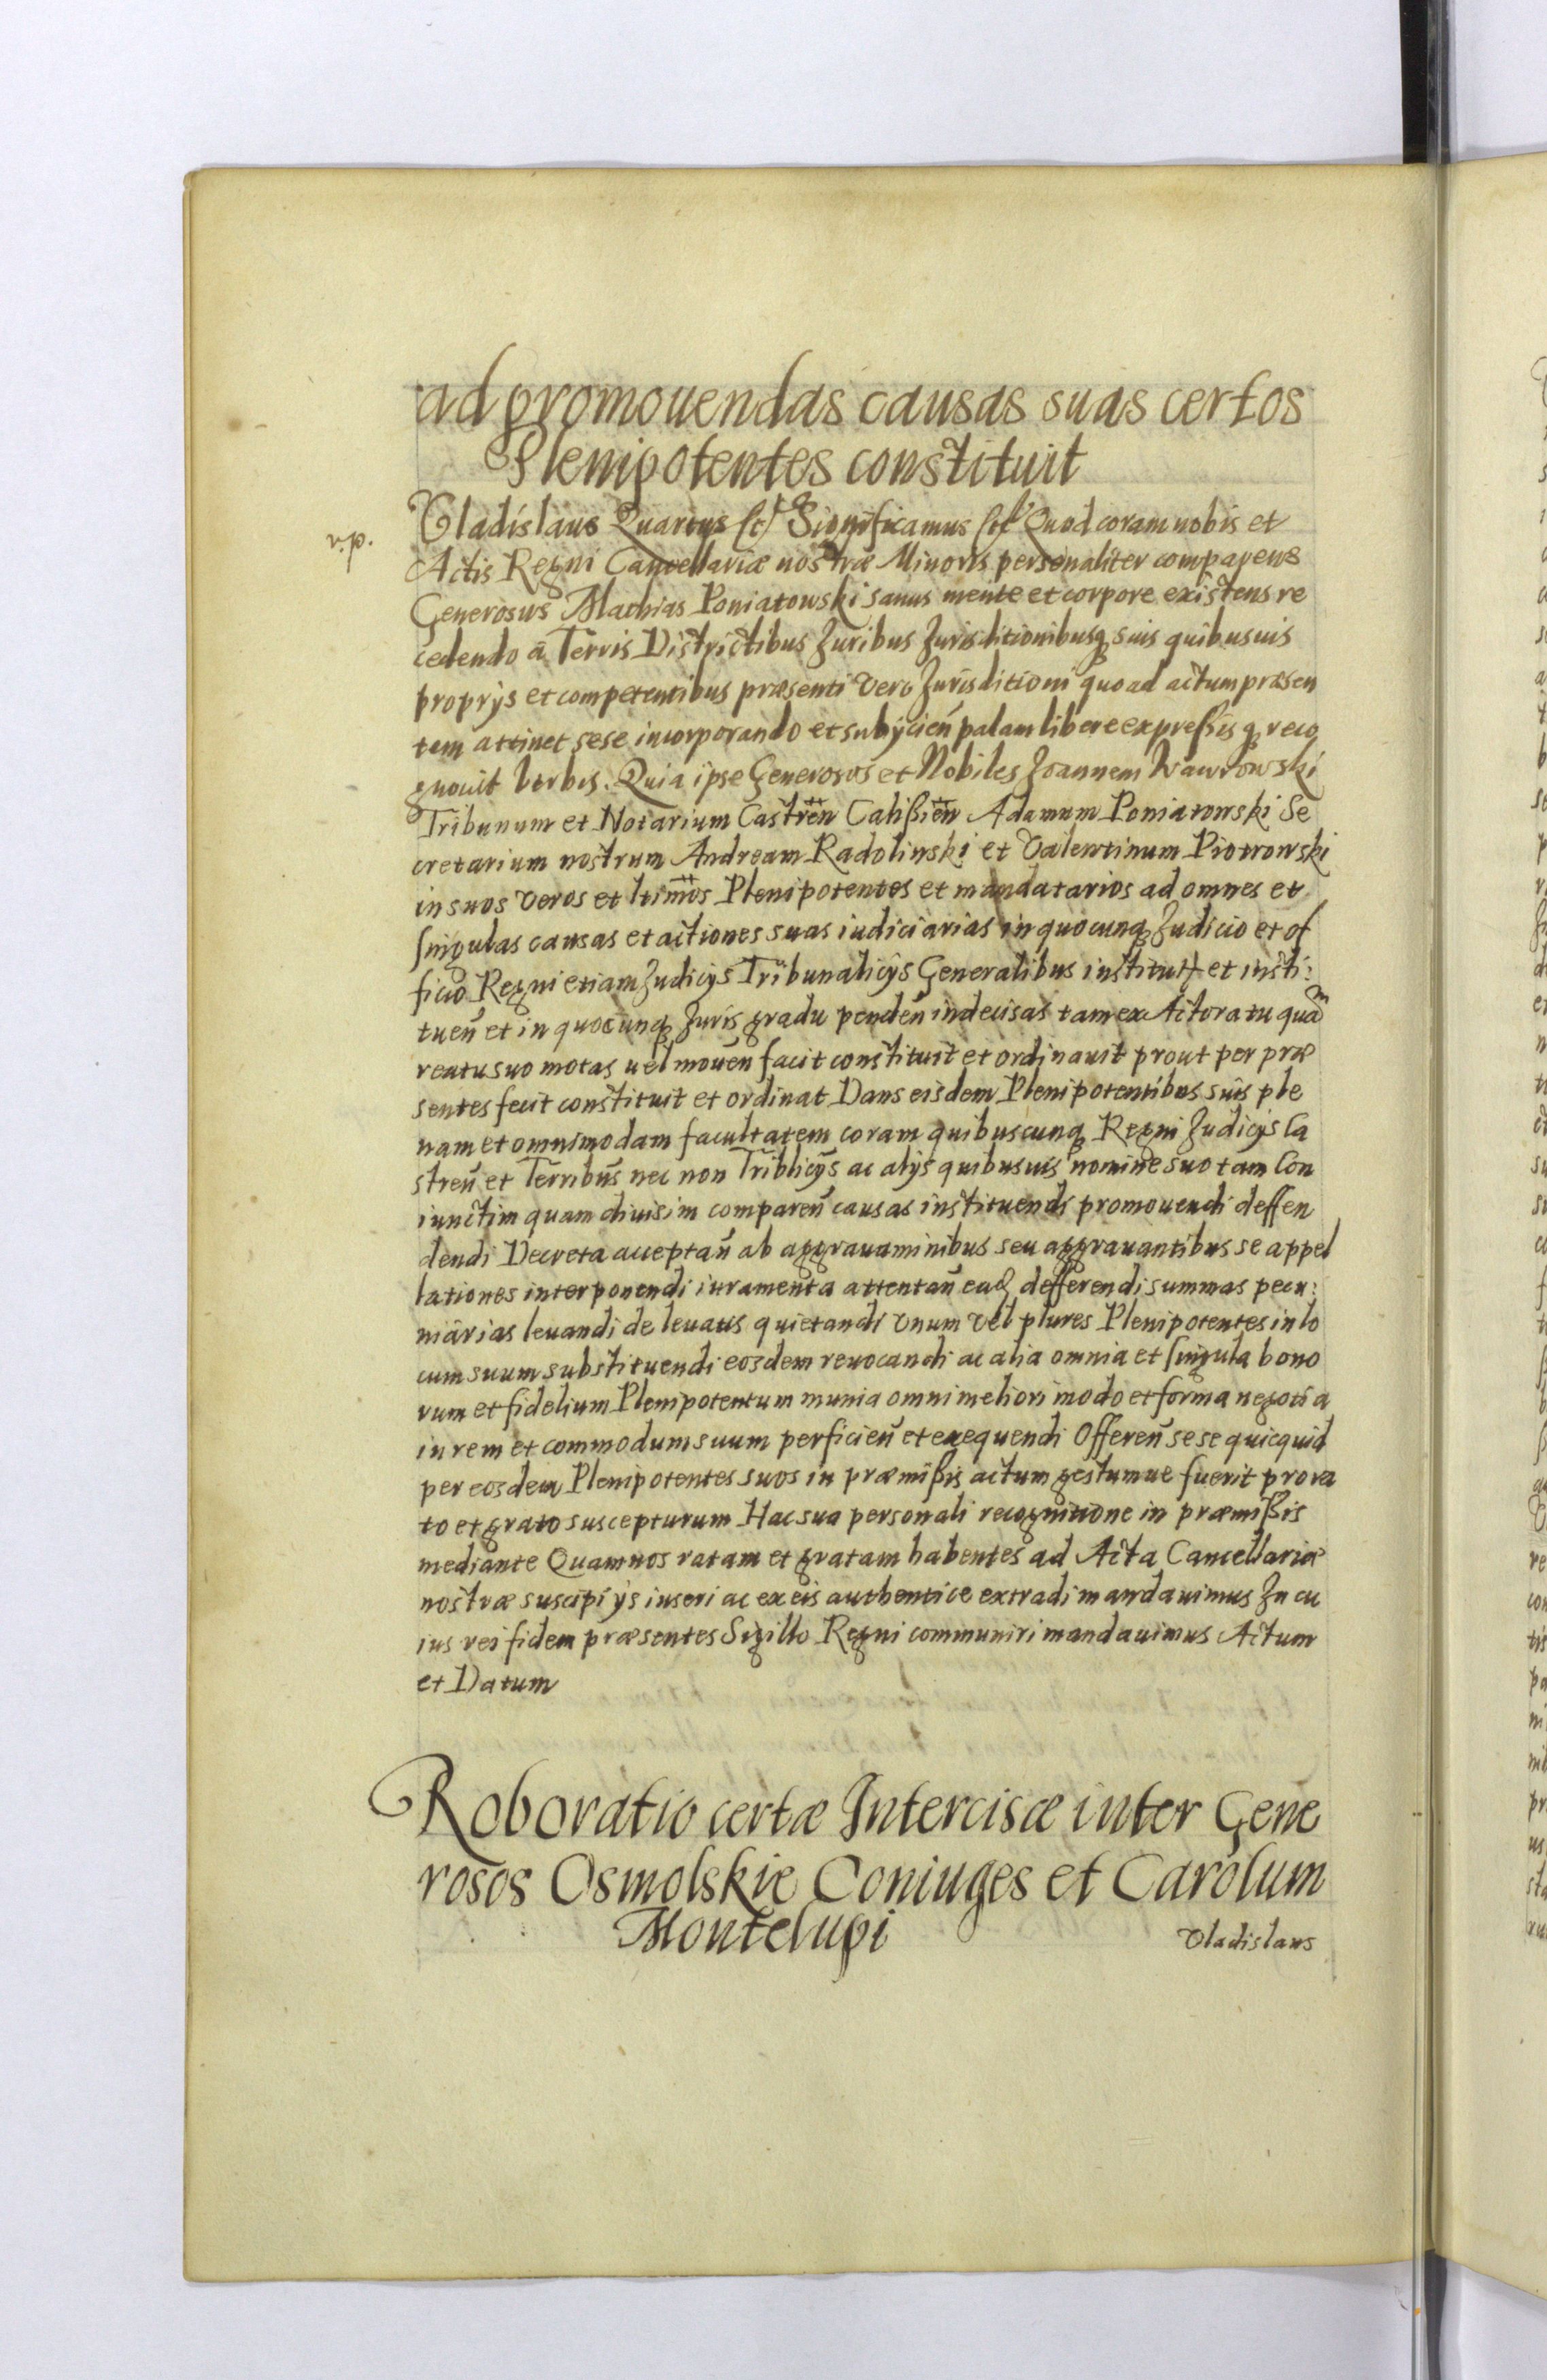 ad promouendas causas suas certos
Plenipotentes constituit
n.p.
Vladislaus Quartus etc Significamus etc Quod coram nobis et
Actis Regni Cancellariæ nostræ Minoris personaliter comparens
Generosus Mathias Poniatowski sanus mente et corpore existens re
cedendo a Terris Districtibus Juribus Jurisditionibusq suis quibusuis
proprÿs et competentibus præsenti vero Jurisditioni quo ad actum præsen
tem attinet sese incorporando et subÿcien̄ palam libere expreßis q reco
gnouit verbis. Quia ipse Generosos et Nobiles Joannem Wawrowski
Tribunum et Notarium Castren̄ Calißien̄ Adamum Poniatowski Se
cretarium nostrum Andream Radolinski et Valentinum Piotrowski
in suos veros et ltimos Plenipotentes et mandatarios ad omnes et
singulas causas et actiones suas iudiciarias in quocunq Judicio et of
ficio Regni etiam Judicÿs Tribunalicÿs Generalibus institut et insti:
tuen̄ et in quocunq Juris gradu penden̄ indecisas tam ex Actoratu quam
reatu suo motas uel mouen̄ facit constituit et ordinauit prout per præ
sentes fecit constituit et ordinat Dans eisdem Plenipotentibus suis ple
nam et omnimodam facultatem coram quibuscunq Regni Judicÿs Ca
stren̄ et Terribus̄ nec non Triblicÿs ac alÿs quibusuis nomine suo tam Con
iunctim quam diuisim comparen̄ causas instituendi promouendi deffen
dendi Decreta acceptan̄ ab aggrauaminibus seu aggrauantibus se appel
lationes interponendi iuramenta attentan̄ eaq defferendi summas pecu:
niarias leuandi de leuatis quietandi vnum vel plures Plenipotentes in lo
cum suum substituendi eosdem reuocandi ac alia omnia et singula bono
rum et fidelium Plenipotentum munia omni meliori modo et forma negotia
in rem et commodum suum perficien̄ et exequendi Offeren̄ sese quicquid
per eosdem Plenipotentes suos in præmißis actum gestumue fuerit pro ra
to et grato suscepturum Hac sua personali recognitione in præmißis
mediante Quam nos ratam et gratam habentes ad Acta Cancellariæ
nostræ suscipi ÿs inseri ac ex eis authentice extradi mandauimus In cu
ius rei fidem præsentes Sigillo Regni communiri mandauimus Actum
et Datum
Roboratio certæ Intercisæ inter Gene
rosos Osmolskie Coniuges et Carolum
Montelupi
Vladislaus